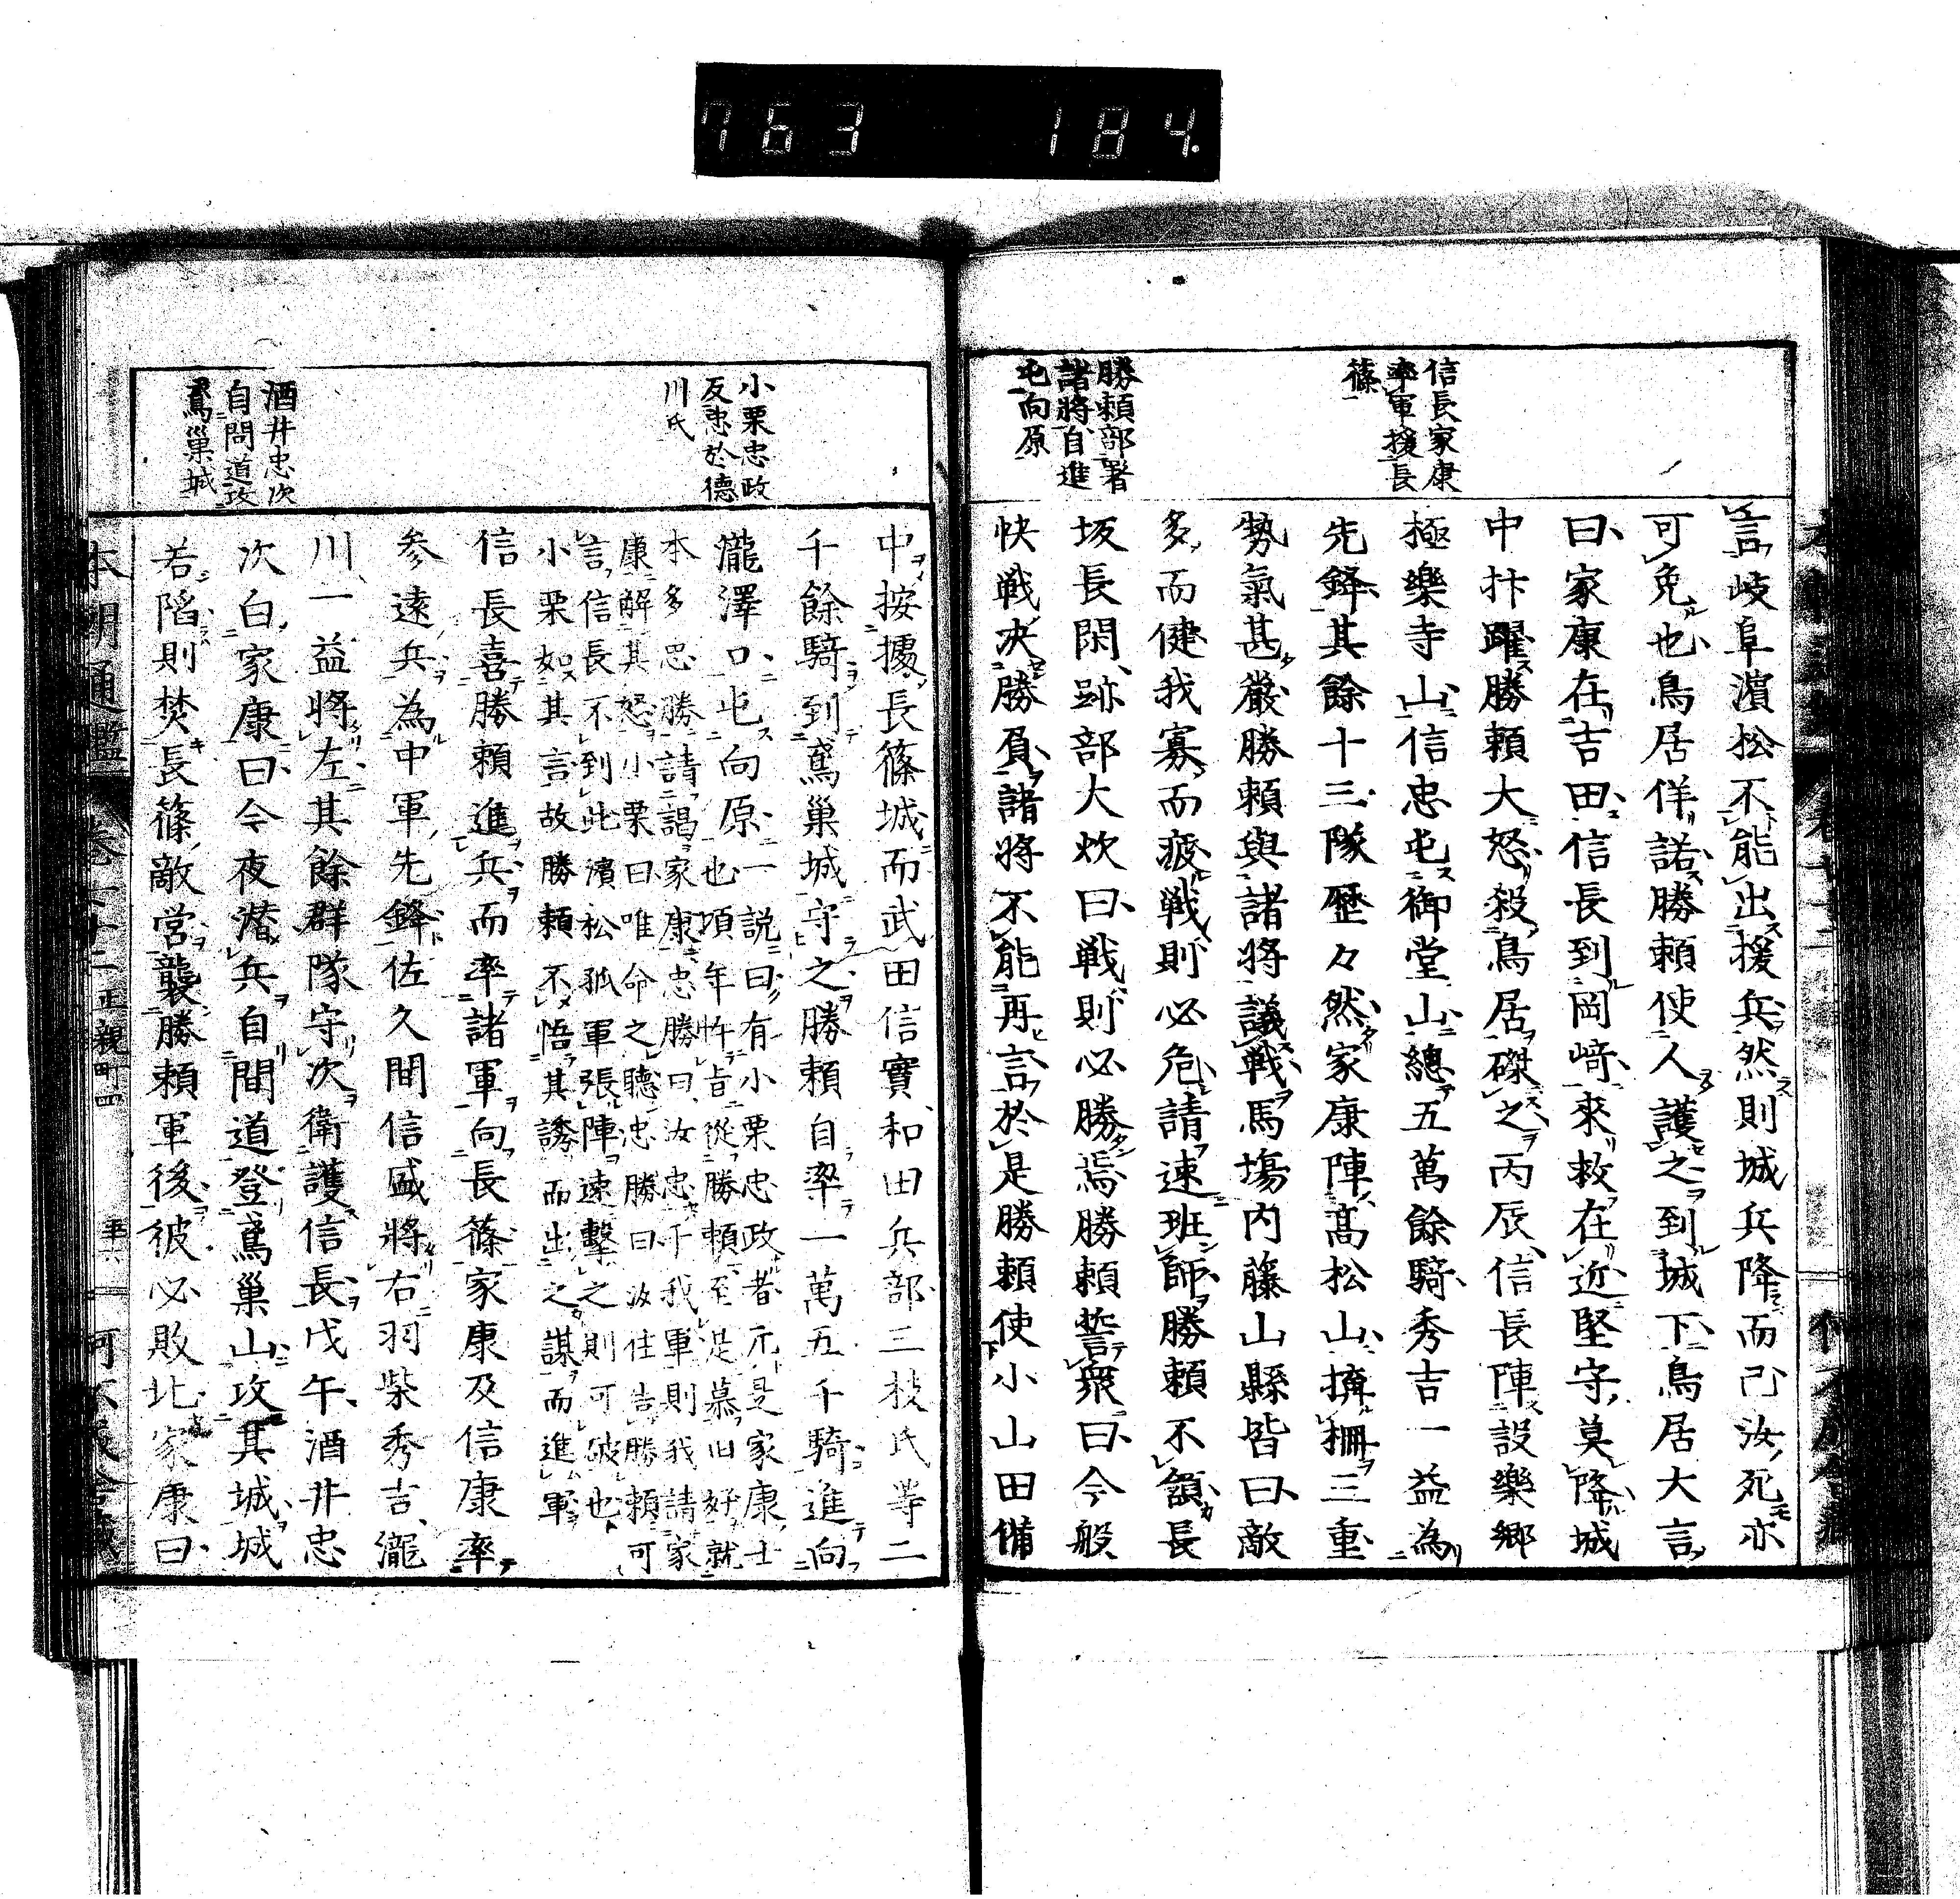 763 184.
信長家康
率軍援長
篠
勝頼部署
諸將自進
屯向原
言岐阜濵松不能出援兵然則城兵降而已汝死亦
可免也鳥居佯諾勝頼使人護之到城下鳥居大言
曰家康在吉田信長到岡﨑來救在近堅守莫降城
中抃躍勝頼大怒殺鳥居磔之丙辰信長陣設樂郷
極樂寺山信忠屯御堂山總五萬餘騎秀吉一益為
先鋒其餘十三隊歴々然家康陣髙松山擠柵三重
勢氣甚嚴勝頼與諸將議戰馬塲内藤山縣皆曰敵
多而健我寡而疲戰則必危請速班師勝頼不頷長
坂長閑跡部大炊曰戰則必勝焉勝頼誓衆曰今般
快戰决勝負諸將不能再言於是勝頼使小山田備
小栗忠政
反忠於德
川氏
酒井忠次
自間道攻
鳶巢城
中按擾長篠城而武田信實和田兵部三枝氏等二
千餘騎到鳶巢城守之勝頼自率一萬五千騎進向
瀧澤口屯向原
一説曰有小栗忠政者元是家康士
也項年忤旨從勝頼至是慕旧好就
本多忠勝請謁家康忠勝曰汝忠于我軍則我請家
康解其怒小栗曰唯命之聽忠勝曰汝往告勝頼可
言信長不到此濵松孤軍張陣速擊之則可破也
小栗如其言故勝頼不悟其誘而出之謀而進軍
信長喜勝頼進兵而率諸軍向長篠家康及信康率
参遠兵為中軍先鋒佐久間信盛將右羽柴秀吉瀧
川一益將左其餘群隊守次衛護信長戊午酒井忠
次白家康曰今夜潜兵自間道登鳶巢山攻其城城
若陷則焚長篠敵営襲勝頼軍後彼必敗北家康曰
本朝通鑑 巻 十二 正親町四